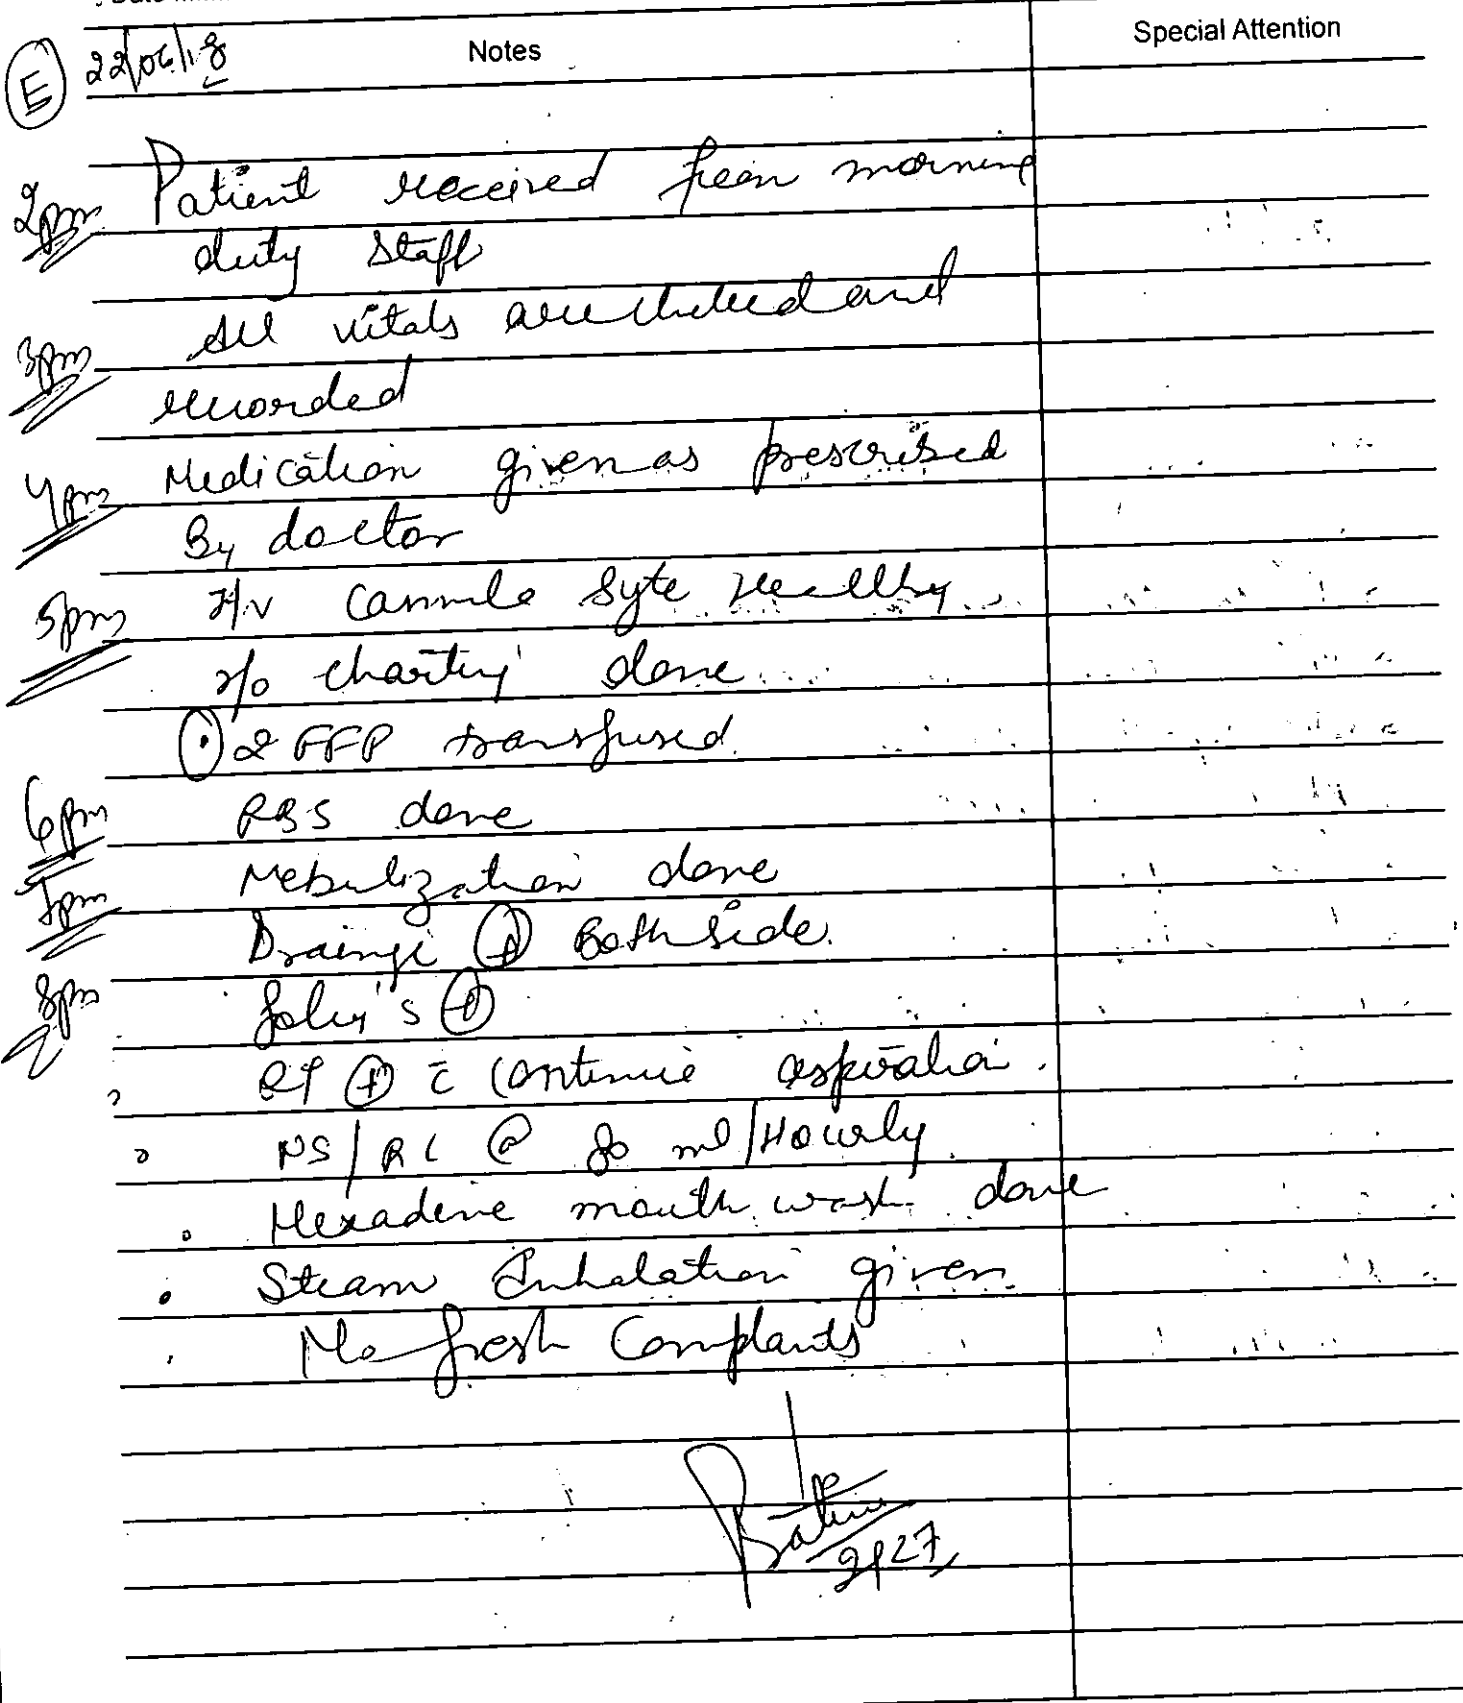 Notes
Special Attention
E 22/06/18
2pm Patient received from morning
duty staff
3pm All vitals are checked and
recorded
4pm Medication given as prescribed
By doctor
5pm I/V Cannula Syte Healthy
I/o charting done
2 FFP transfused.
6pm RBS done
7pm Nebulization done
Drainge + Both side.
8pm foley's +
RT + c̄ continue aspiration.
NS/RL @ 80 ml/Hourly
Hexadine mouth wash done
Steam Inhalation given.
No fresh Complants